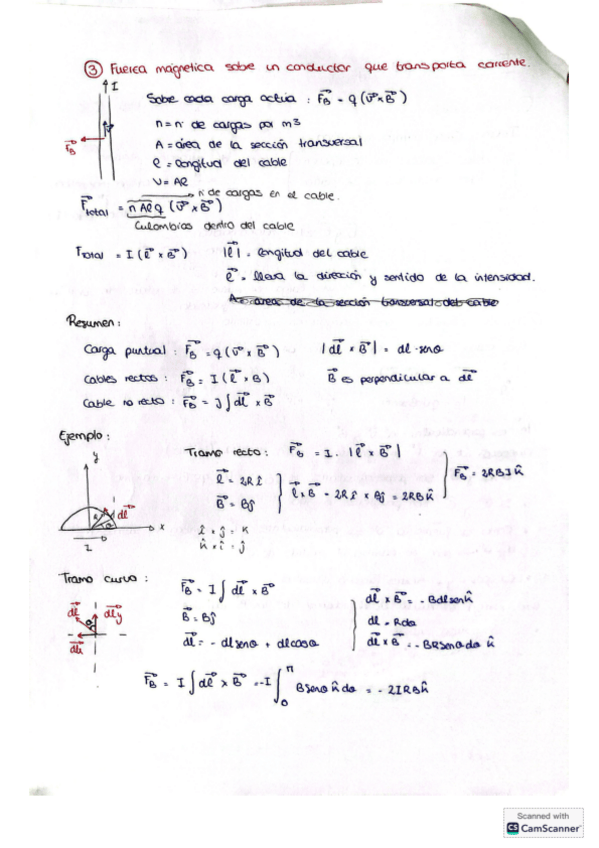 ③ Fuerza magnetica sobe un conductor que transporta corriente.
I
Sobe cada carga actua : F⃗B = q (v⃗ × B⃗)
n = nº de cargas por m³
F⃗B
A = área de la sección transversal
l = longitud del cable
V = Al
nº de cargas en el cable.
F⃗total = n A l q (v⃗ × B⃗)
Culombios dentro del cable
Ftotal = I (l⃗ × B⃗) |l⃗| = longitud del cable
l⃗ = lleva la dirección y sentido de la intensidad.
A = area de la sección transversal del cable
Resumen :
Carga puntual : F⃗B = q (v⃗ × B⃗) |dl⃗ × B⃗| = dl · senα
Cables rectos : F⃗B = I (l⃗ × B) B⃗ es perpendicular a dl⃗
Cable no recto : F⃗B = J ∫ dl⃗ × B⃗
Ejemplo :
y
Tramo recto : F⃗B = I · |l⃗ × B⃗|
l⃗ = 2R î
B⃗ = Bĵ
l⃗ × B⃗ = 2R î × Bĵ = 2RB k̂
F⃗B = 2RBI k̂
dl⃗
x
I
î × ĵ = k
k̂ × î = ĵ
Tramo curvo :
F⃗B = I ∫ dl⃗ × B⃗
B⃗ = Bĵ
dl⃗ = - dl senα + dl cosα
dl⃗ × B⃗ = - Bdl senk̂
dl = Rdα
dl⃗ × B⃗ = - BR senα dα k̂
dl⃗ dl⃗y
dl⃗x
F⃗B = I ∫ dl⃗ × B⃗ = -I ∫₀^π B senα k̂ dα = - 2IRB k̂
Scanned with
CS CamScanner